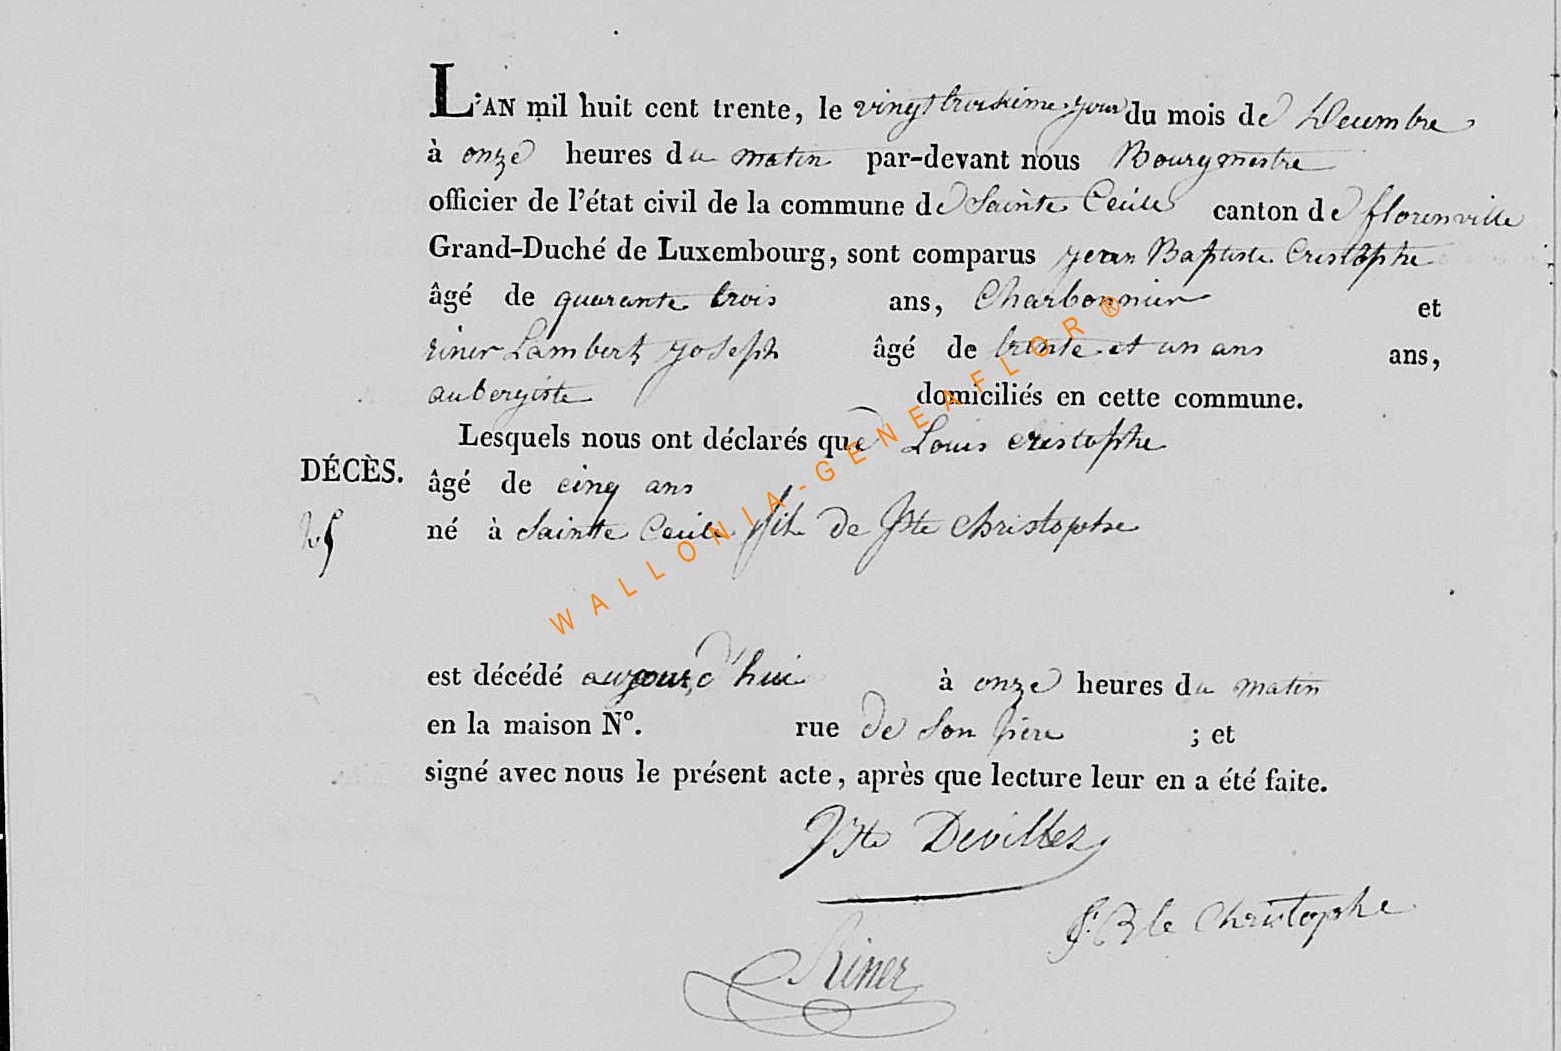 L'AN mil huit cent trente, le vingt troisieme jour du mois de Decembre
à onze heures du matin par-devant nous Bourgmestre
officier de l'état civil de la commune de Sainte Cecile canton de florenville
Grand-Duché de Luxembourg, sont comparus jean Baptiste Cristophe
âgé de quarante trois ans, Charbonnier et
riner Lambert joseph âgé de trente et un ans ans,
aubergiste domiciliés en cette commune.
Lesquels nous ont déclarés que Louis cristophe
DÉCÈS. âgé de cinq ans
25 né à Sainte Cecile fils de Jste christophe
est décédé aujourd'hui à onze heures du matin
en la maison N°. rue de son père ; et
signé avec nous le présent acte, après que lecture leur en a été faite.
Devillez
J: B te Christophe
Riner
WALLONIA-GENEAFLOR®